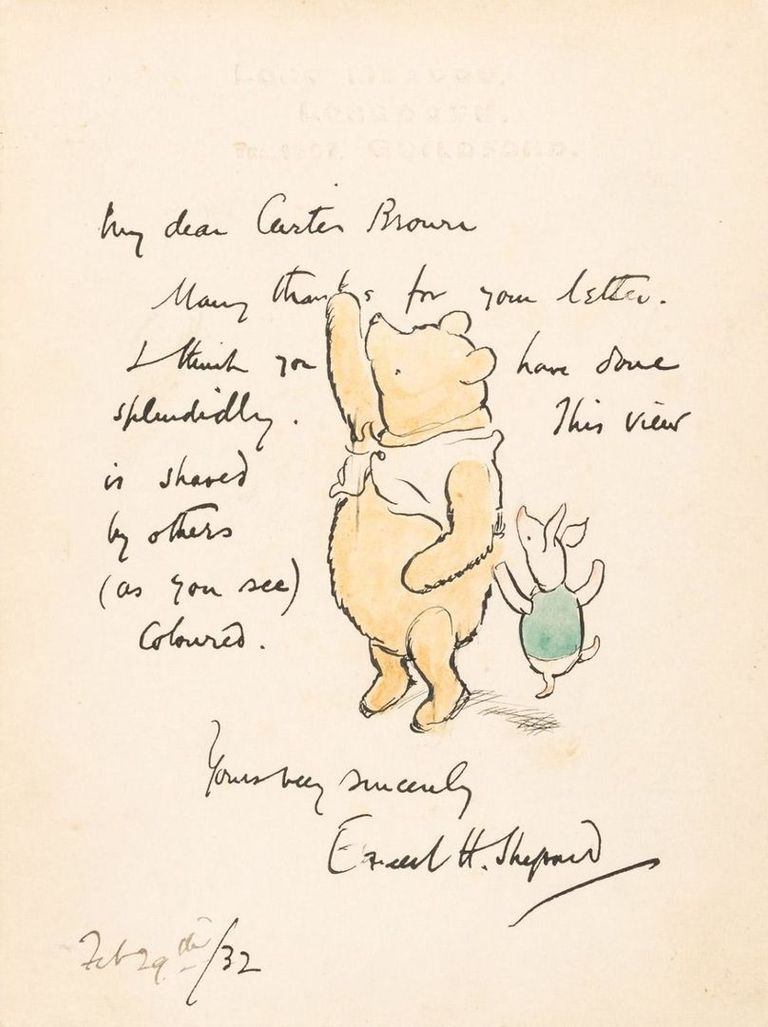 GUILDFORD.
My dear Curtis Brown
Many thanks for your letter.
I think you have done
splendidly. This view
is shared
by others
(as you see)
Coloured.
Yours very sincerely
Ernest H. Shepard
Feb 29th/32